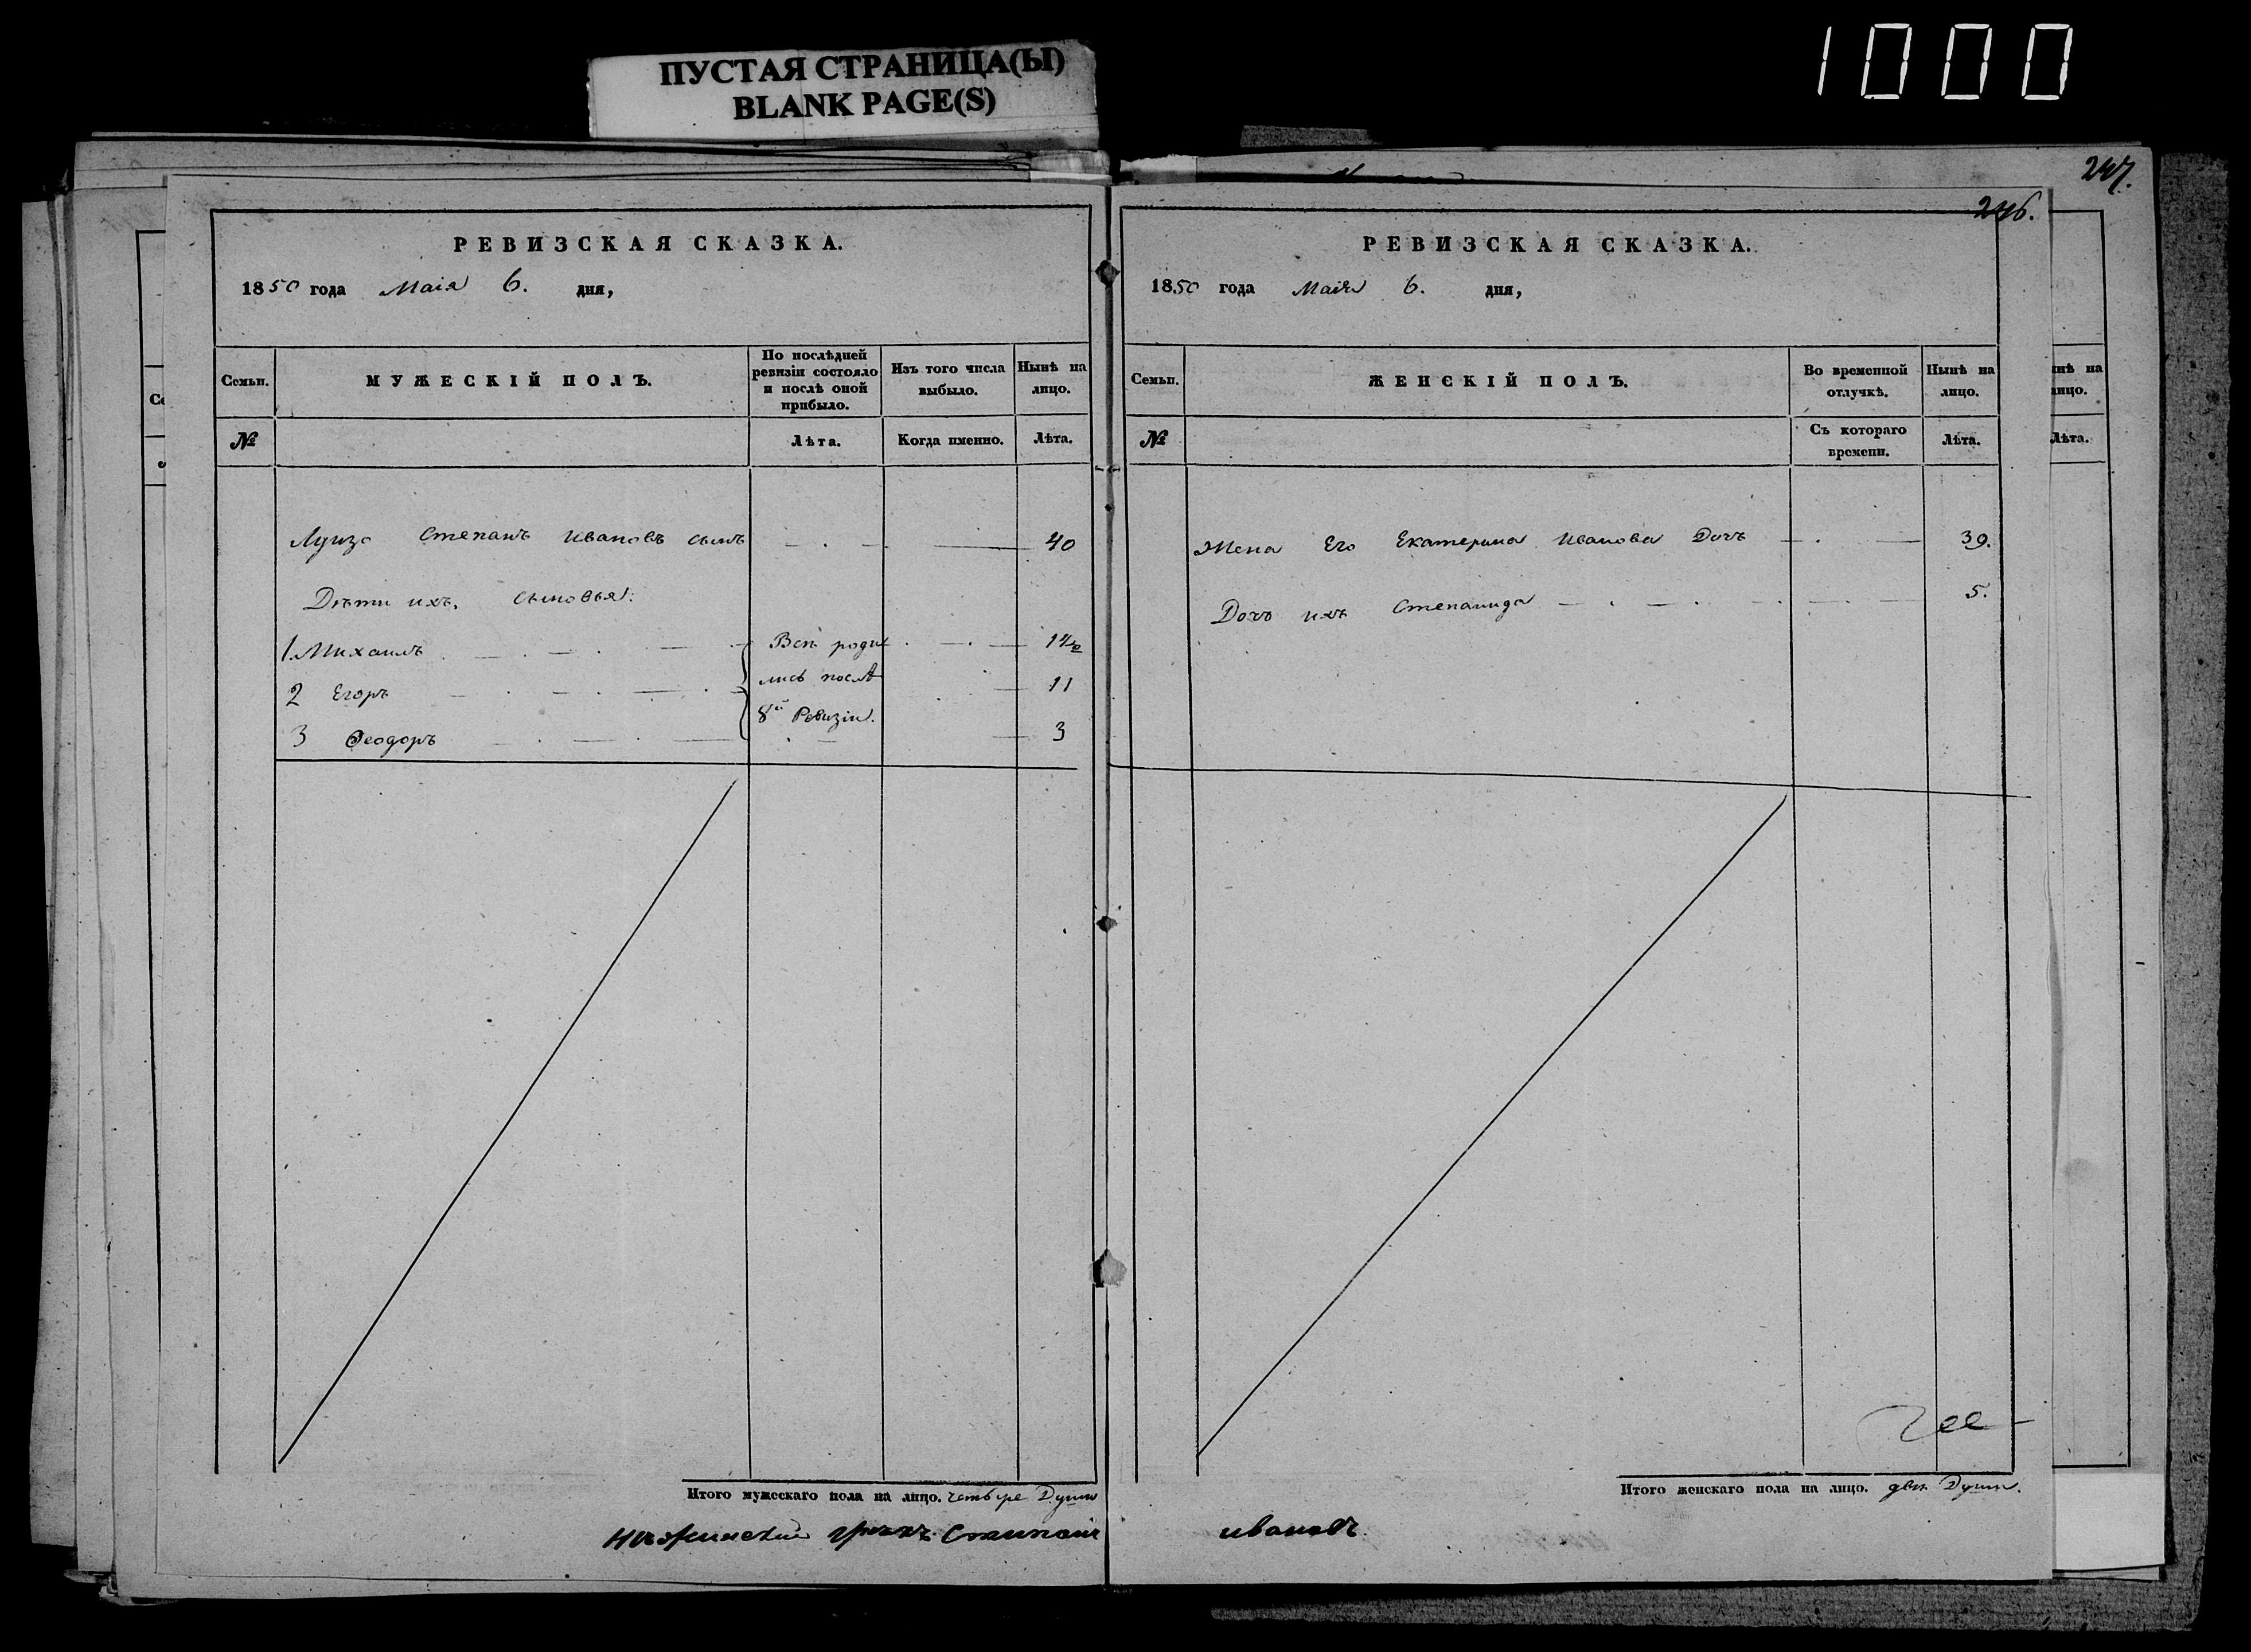 ПУСТАЯ СТРАНИЦА(Ы)
BLANK PAGE(S)
1000
247.
246.
РЕВИЗСКАЯ СКАЗКА.
1850 года Маія 6. дня,
Семьи.
МУЖЕСКІЙ ПОЛЪ.
По послѣдней ревизіи состояло и послѣ оной прибыло.
Изъ того числа выбыло.
Нынѣ на лицо.
№
Лѣта.
Когда именно.
Лѣта.
Степанъ Ивановъ сынъ 40
Дѣти ихъ. сыновья:
1. Михаилъ Всѣ роди 14
2 Егоръ лись послѣ 11
8й Ревизіи.
3 Ѳеодоръ 3
Итого мужескаго пола на лицо. четыре Души
РЕВИЗСКАЯ СКАЗКА.
1850 года Маія 6. дня,
Семьи.
ЖЕНСКІЙ ПОЛЪ.
Во временной отлучкѣ.
Нынѣ на лицо.
№
Съ котораго времени.
Лѣта.
Жена Его Екатерина Иванова Дочь 39.
Дочь ихъ Степанида 5.
Итого женскаго пола на лицо. двѣ Души.
Нѣжинский грекъ Стипанъ ивановъ.